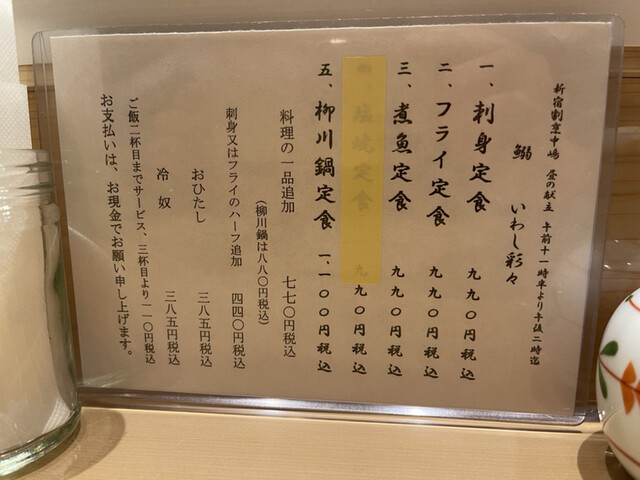 新宿割烹中嶋　昼の献立　午前十一時半より午後二時迄
鰯　いわし彩々
一、刺身定食　九九〇円税込
二、フライ定食　九九〇円税込
三、煮魚定食　九九〇円税込
四、塩焼定食　九九〇円税込
五、柳川鍋定食　一、一〇〇円税込
料理の一品追加　七七〇円税込
（柳川鍋は八八〇円税込）
刺身又はフライのハーフ追加　四四〇円税込
おひたし　三八五円税込
冷奴　三八五円税込
ご飯二杯目までサービス、三杯目より一一〇円税込
お支払いは、お現金でお願い申し上げます。